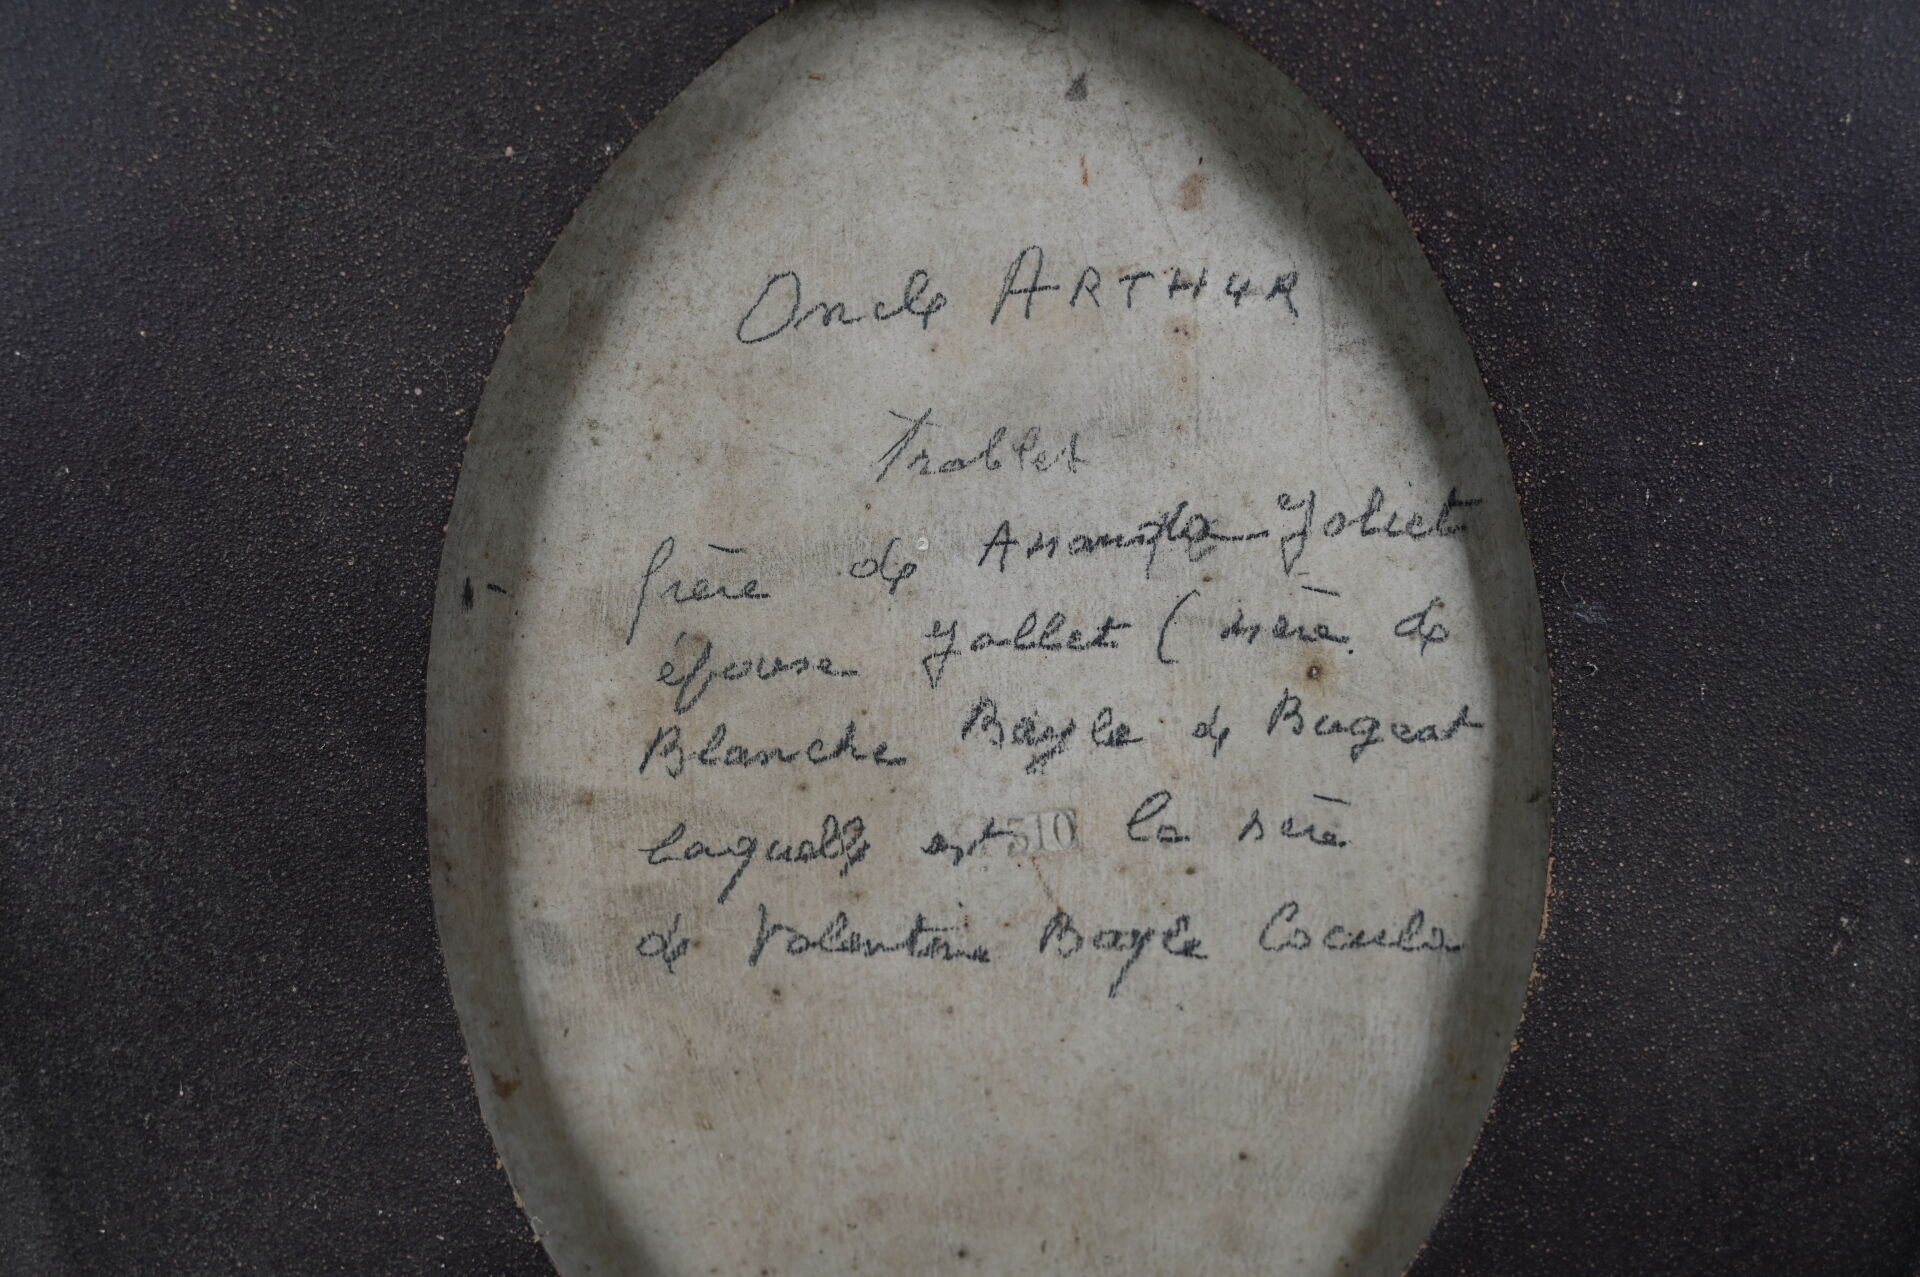 Oncle ARTHUR
Trablet
frère de Joliet
épouse Jallet (mère de
Blanche Bayle de Bugeat
laquelle est la mère
510
de Valentine Bayle Coculo